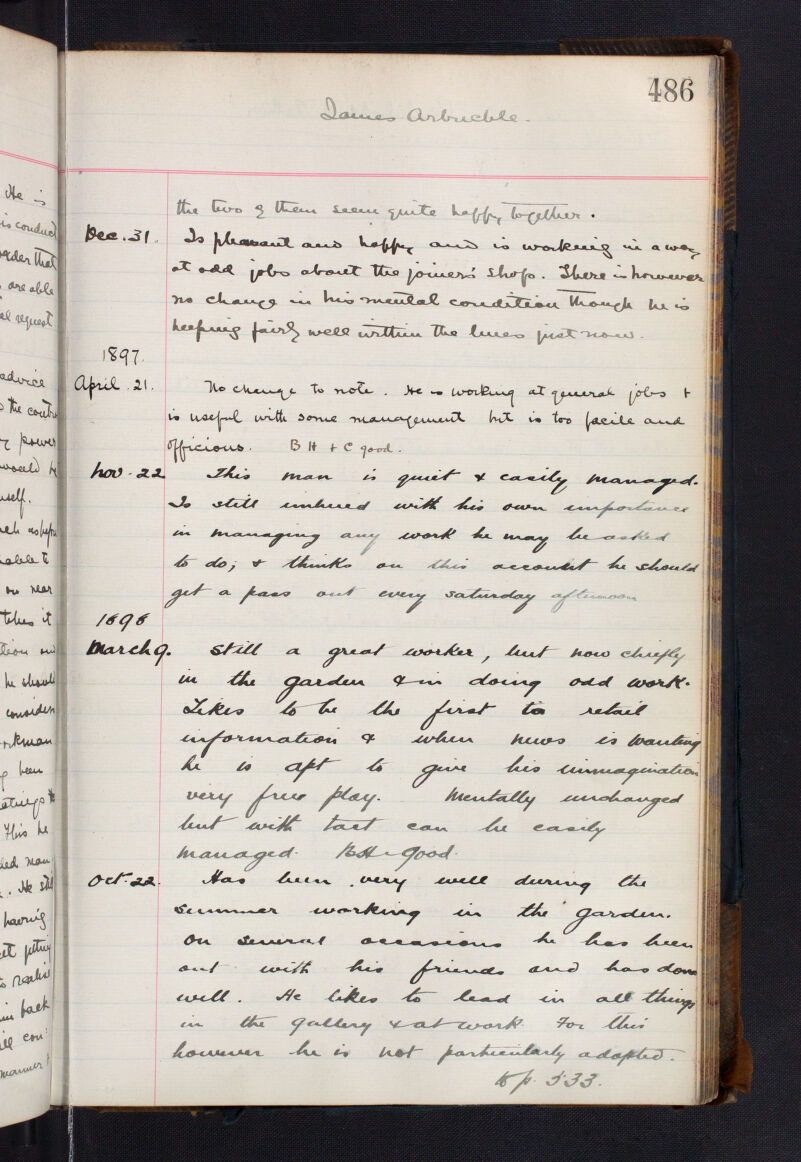 486
James Arbuckle.
the two of them seem quite happy together.
Dec. 31. Is pleasant and happy and is working in a way
at odd jobs about the joiner's shop. There is however
no change in his mental condition though he is
keeping fairly well within the lines just now.
1897.
April. 21. No change to note. He is working at general jobs &
is useful with some management but is too facile and
officious. B H & C good.
Nov. 22 This man is quiet & easily managed.
Is still imbued with his own importance
in managing any work he may be asked
to do; & thinks on this account he should
get a pass out every saturday afternoon
1898
March 9. Still a great worker, but now chiefly
in the garden & in doing odd work.
Likes to be the first to retail
information & when news is wanting
he is apt to give his immagination
very free play. Mentally unchanged
but with tact can be easily
managed. B.H. Good.
Oct. 22. Has been very well during the
summer working in the garden.
On several occasions he has been
out with his friends and has done
well. He likes to lead in all things
in the gallery & at work. For this
however he is not particularly adapted.
to p. 533.
He is
is conduct
that
are able
request
advice
the
power
would
self.
able to
no near
it
he should
consider
been
This he
man
He still
having
to realise
back
manner